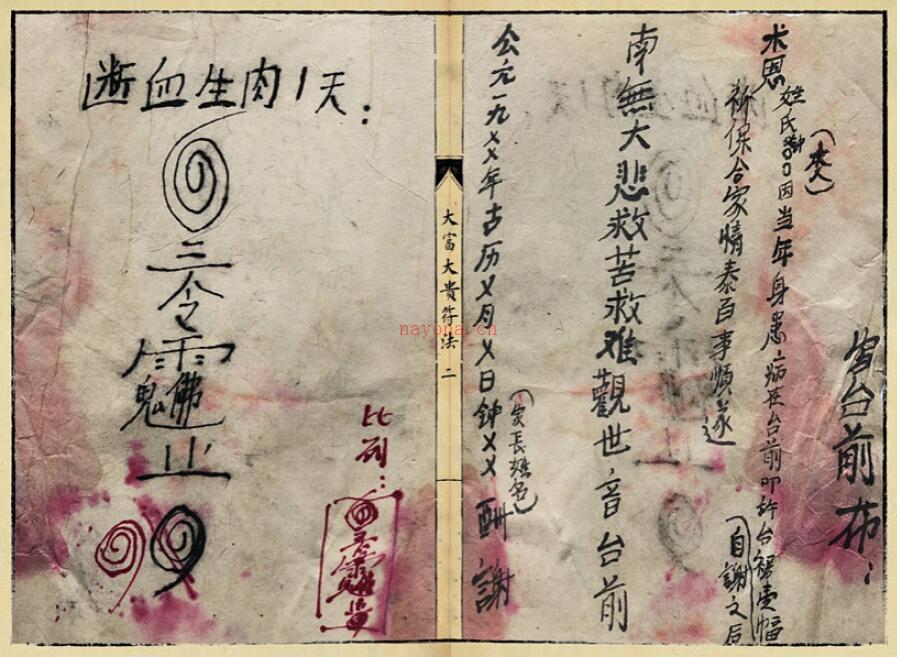 台前布：
术恩姓氏因当年身患病在台前叩許台裙壹幅
自謝之后
祈保合家情泰百事順遂
南無大悲救苦救难觀世音台前
公元一九××年古历×月×日钟××酬謝
（家長姓名）
大富大貴符法 二
nayona.cn
断血生肉1天：
三令
雲
鬼佛
止
比列：